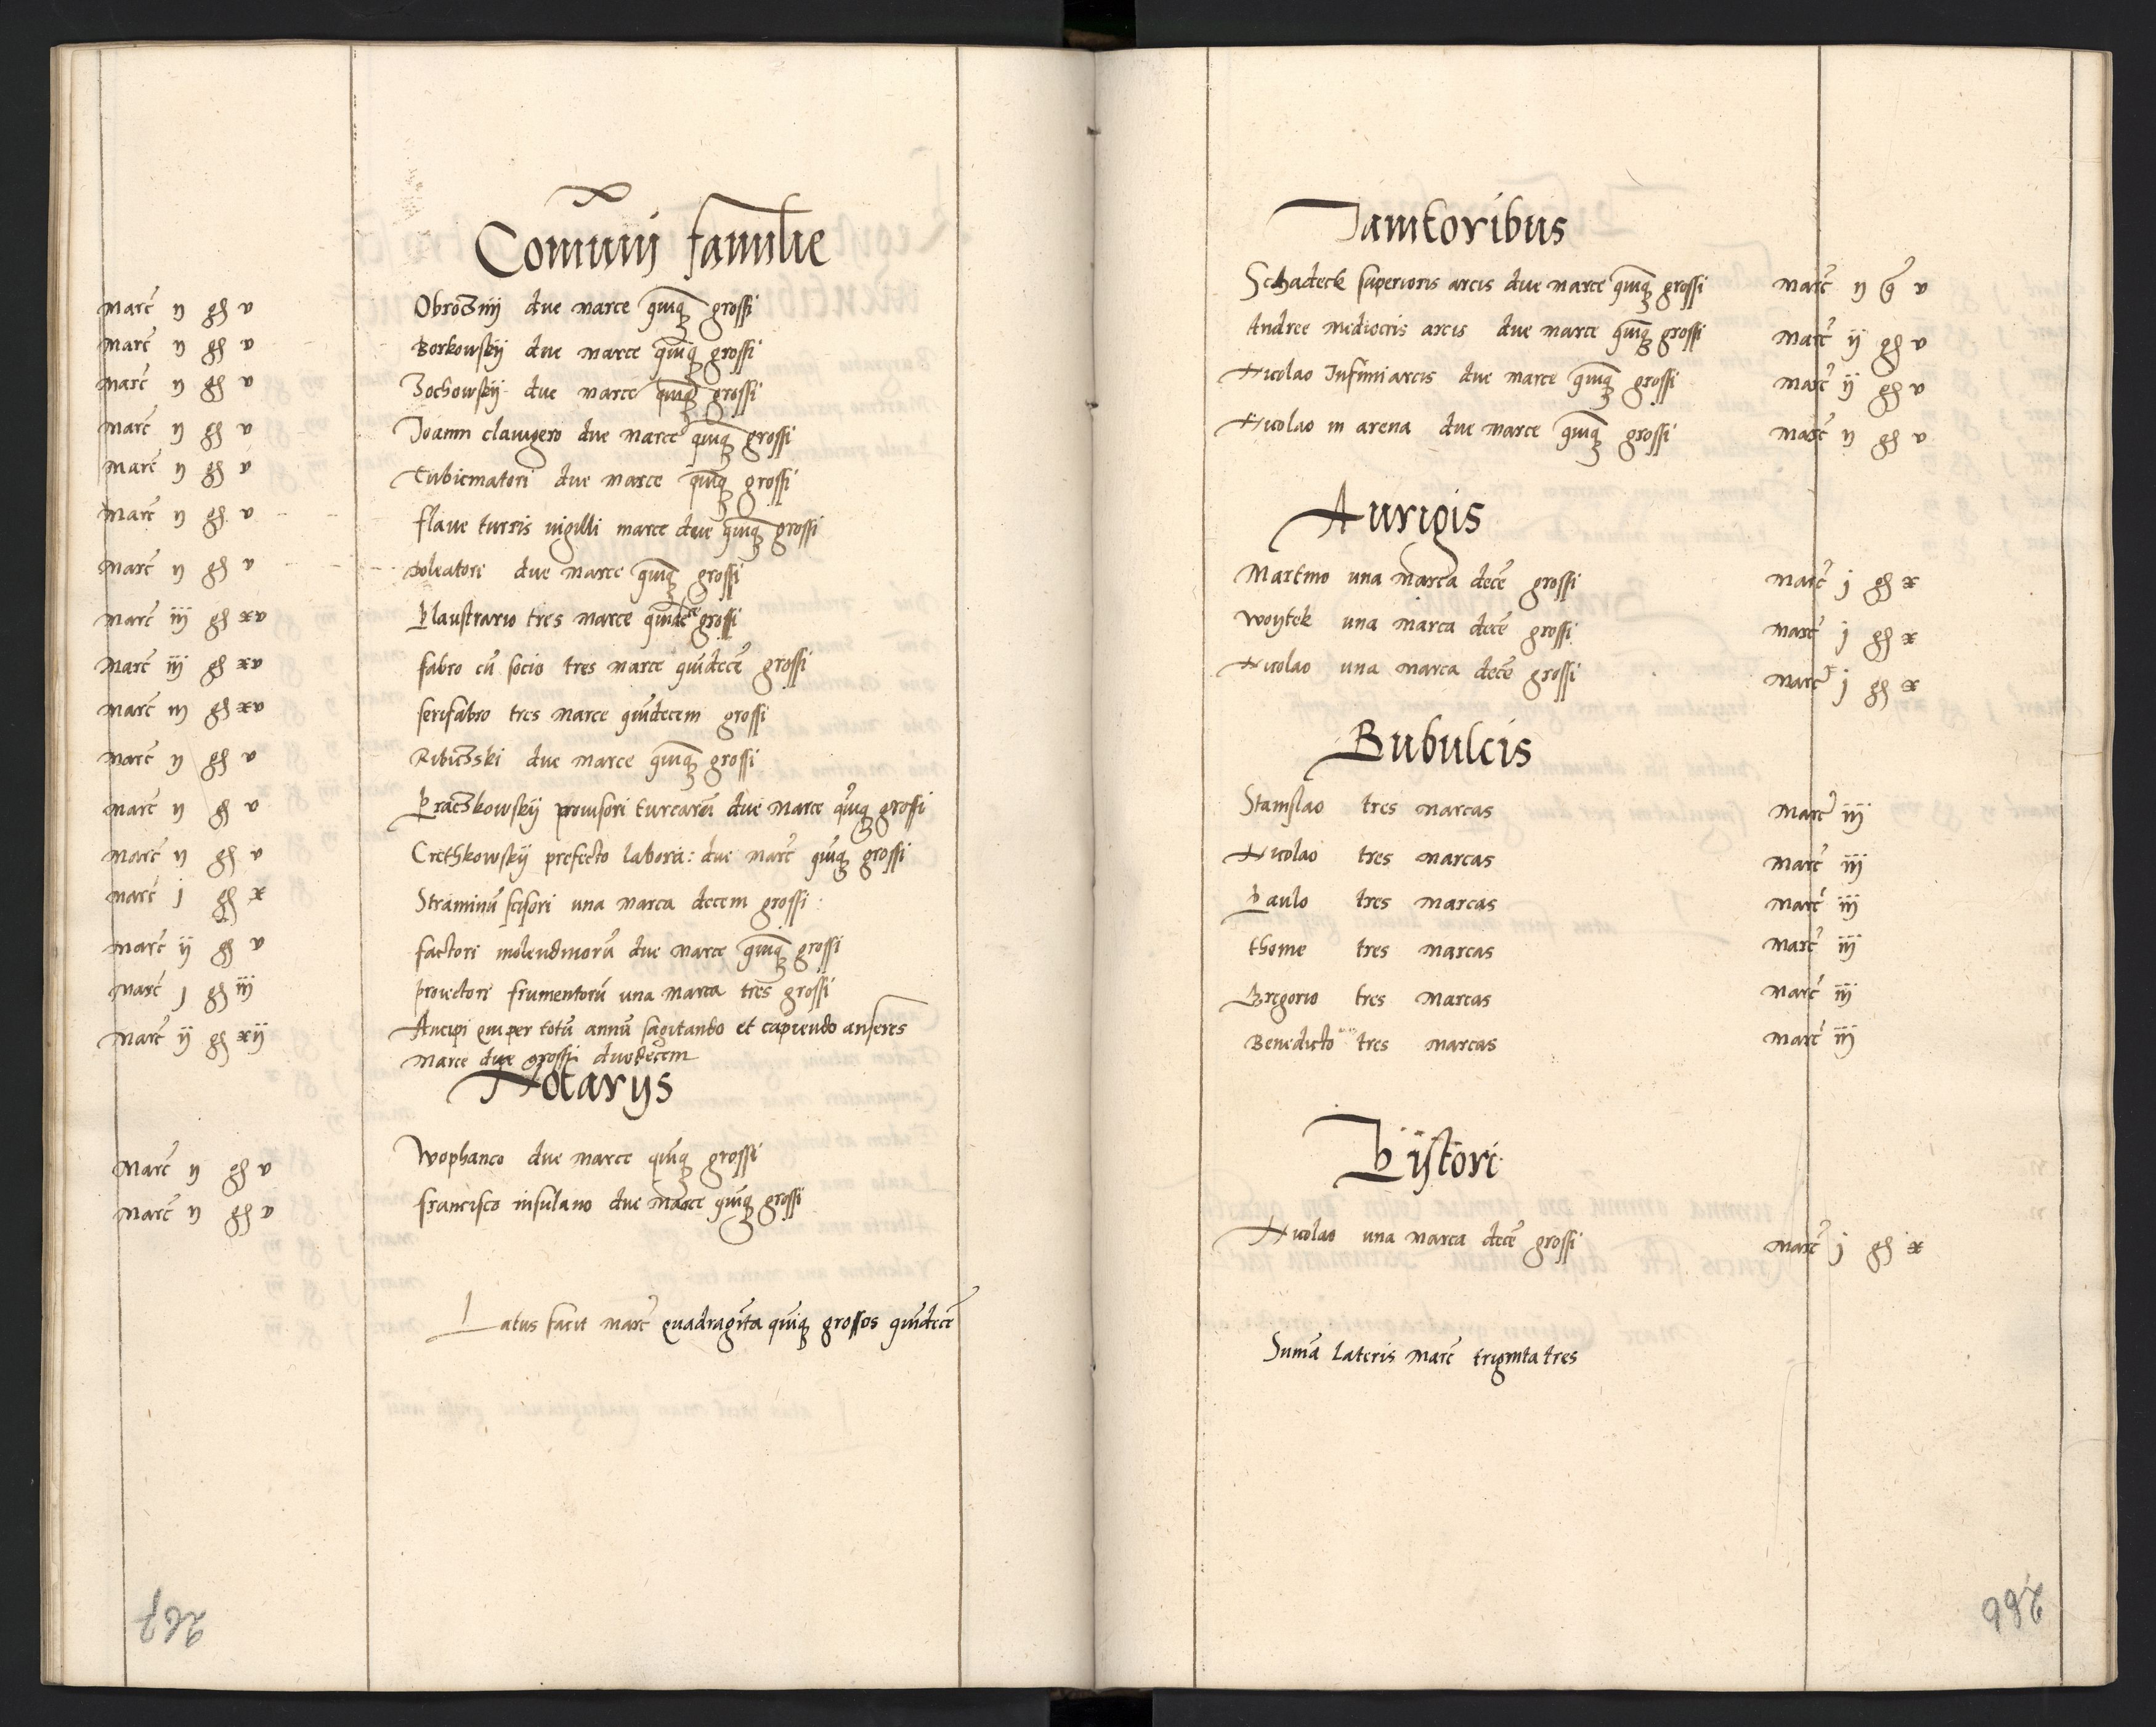 Comunij familie
Marc ij gh v Obroczny due marce quinq grossi
Marc ij gh v Borkowskij due marce quinq grossi
Marc ij gh v Zochowskij due marce quinq grossi
Marc ij gh v Joanni clauigero due marce quinq grossi
Marc ij gh v Tubicinatori due marce quinq grossi
Marc ij gh v flaue turris uigilli marce due quinq grossi
Marc ij gh v doleatori due marce quinq grossi
Marc iij gh xv Plaustrario tres marce quindecē grossi
Marc iij gh xv fabro cū socio tres marce quīdecē grossi
Marc iij gh xv serifabro tres marce quīdecem grossi
Marc ij gh v Ribiczski due marce quinq grossi
Marc ij gh v Praczkowskij prouisori turcarū due marce quīq grossi
Marc ij gh v Crethkowskij prefecto labora: due marc quīq grossi
Marc j gh x Straminū scisori una marca decem grossi
Marc ij gh v factori molendinorū due marce quinq grossi
Marc j gh iij prouectori frumentorū una marca tres grossi
Marc ij gh xij Aucupi qui per totū annū sagitando et capiendo anseres
marce due grossi duodecem
Notarijs
Marc ij gh v Wophanco due marce quīq grossi
Marc ij gh v francisco insulano due marce quīq grossi
Latus facit marc quadragīta quīq grossos quīdecē
267
Janitoribus
Schadeck superioris arcis due marce quinq grossi Marc ij g v
Andree mediocris arcis due marce quinq grossi Marc ij gh v
Nicolao Infimi arcis due marce quinq grossi Marc ij gh v
Nicolao in arena due marce quinq grossi Marc ij gh v
Aurigis
Martino una marca decē grossi Marc j gh x
Woytek una marca decē grossi Marc j gh x
Nicolao una marca decē grossi Marc j gh x
Bubulcis
Stanislao tres marcas Marc iij
Nicolao tres marcas Marc iij
Paulo tres marcas Marc iij
thome tres marcas Marc iij
Gregorio tres marcas Marc iij
Benedicto tres marcas Marc iij
Pistori
Nicolao una marca decē grossi Marc j gh x
Sumā lateris marc triginta tres
266